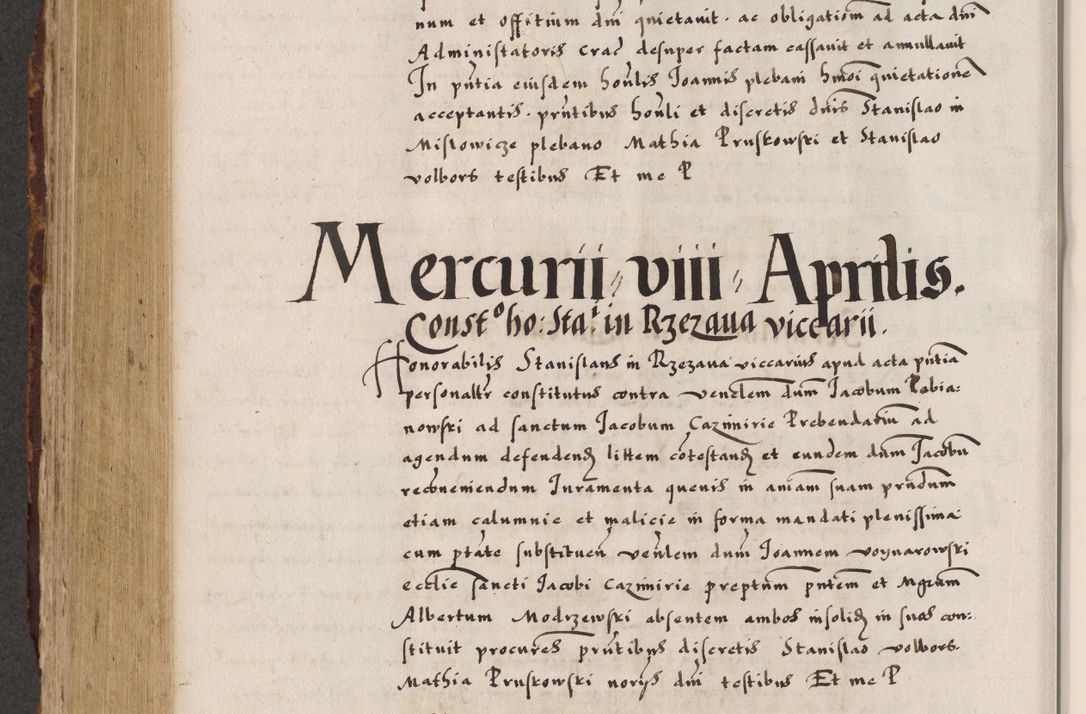 num et offitium dni quietavit · ac obligationem ad acta dni
Administatoris Crac desuper factam cassavit et annullavit
In pntia eiusdem honlis Joannis plebani hmoi quietatione
acceptantis · pntibus honli et discretis dnis Stanislao in
Mislowicze plebano Mathia Pruskowski et Stanislao
volbors testibus Et me P
Mercurii viii Aprilis.
Consto ho: Stai in Rzezaua viccarii.
Honorabilis Stanislaus in Rzezaua viccarius apud acta pntia
personalr constitutus contra venelem dum Jacobum Robia:
nowski ad sanctum Jacobum Cazimirie Prebendarium ad
agendum defendend littem cotestand et eundem dum Jacobu
reconveniendum Juramenta quevis in aniam suam prndum
etiam calumnie et malicie in forma mandati plenissima
cum ptate substituen venlem dum Joannem voynarowski
ecclie sancti Jacobi Cazimirie preptum pntem et Mgrum
Albertum Modrzewski absentem ambos insolid in suos con:
stituit procures prntibus discretis Stanislao volbors.
Mathia Pruskowski norijs dni testibus Et me P